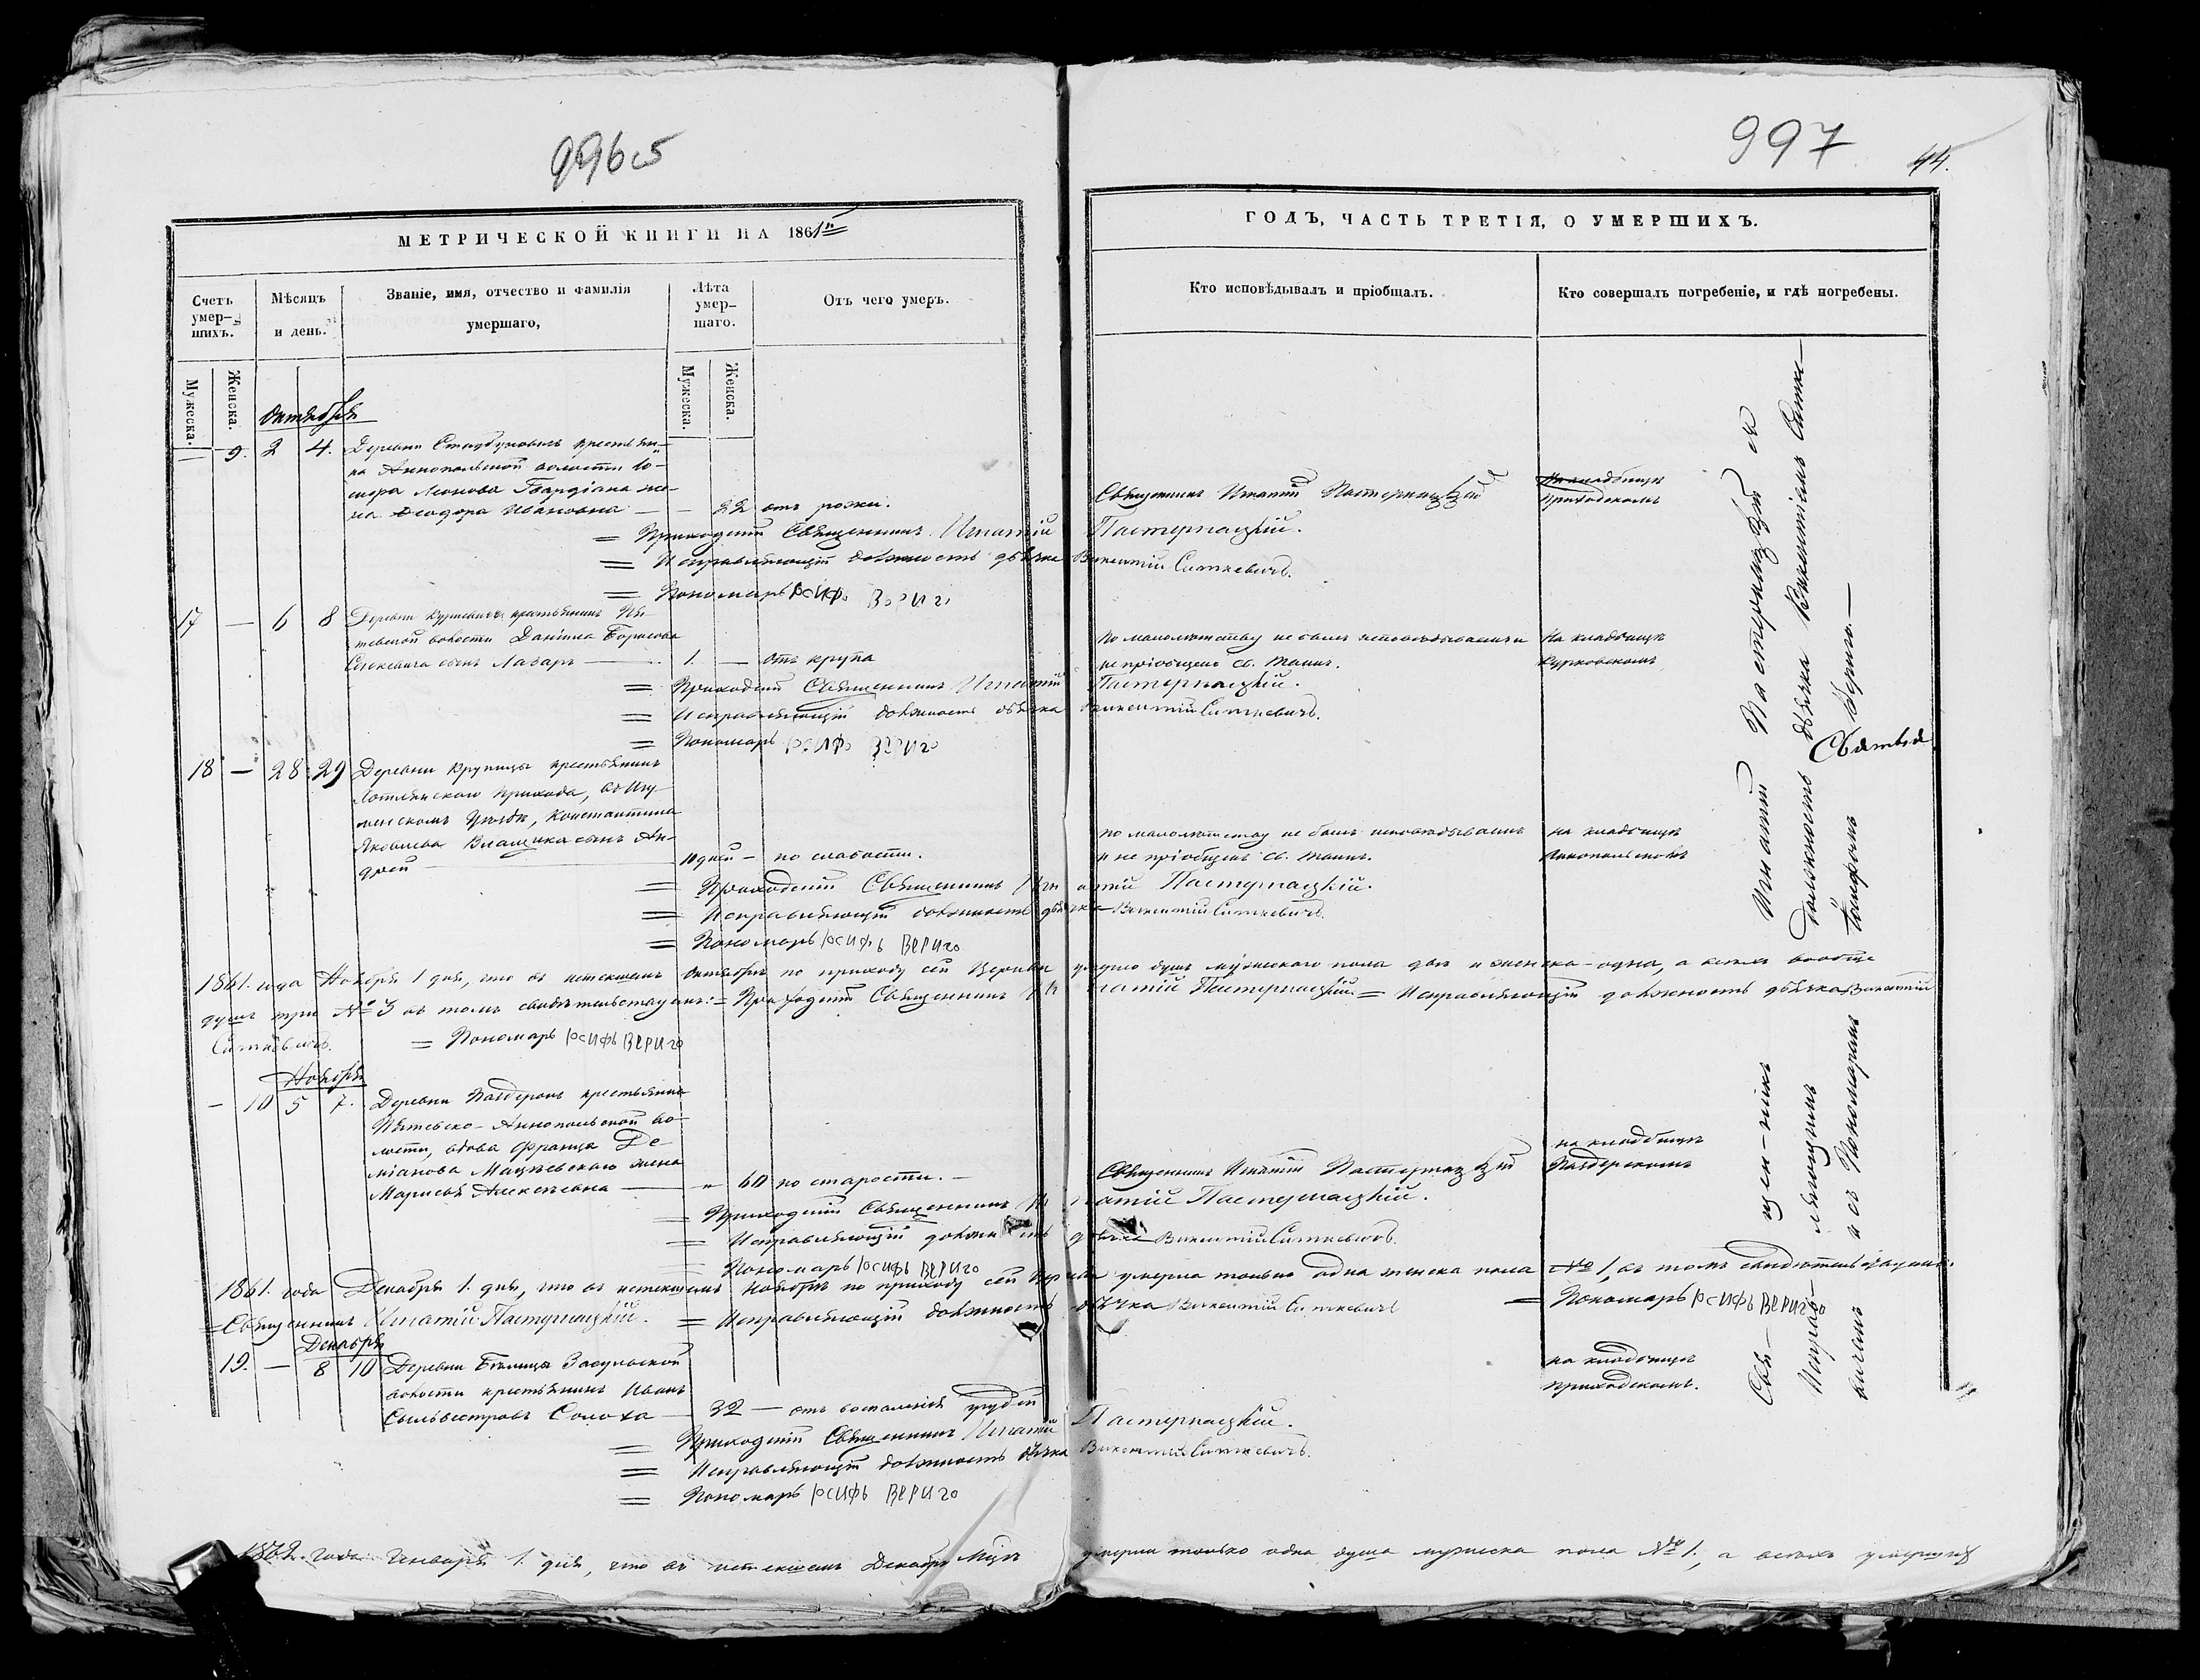 996 об
997
44.
МЕТРИЧЕСКОЙ КНИГИ НА 1861й
ГОДЪ, ЧАСТЬ ТРЕТІЯ, О УМЕРШИХЪ.
Счетъ умер-шихъ.
Мѣсяцъ и день.
Званіе, имя, отчество и фамилія умершаго,
Лѣта умер-шаго.
Отъ чего умеръ.
Кто исповѣдывалъ и пріобщалъ.
Кто совершалъ погребеніе, и гдѣ погребены.
Мужеска.
Женска.
Мужеска.
Женска.
Октября
— 9. 2 4. Деревни крестьяни-
на Аннопольской волости
Леонова жe-
на Ѳеодора Ивановна — — 22 отъ рожи.
Священникъ Игнатій Пастернацкій
на кладбищѣ
приходскомъ
= Приходскій Священникъ Игнатій Пастернацкій.
= Исправляющій должность дьячка Викентій Ситкевичъ.
= Пономарь Іосифъ Вериго
17 — 6 8 Деревни крестьянинъ
волости Даніила Борисова
сынъ Лазарь — 1. — отъ крупа
по малолѣтству не былъ исповѣдыванъ и
не пріобщенъ св. таинъ.
на кладбищѣ
= Приходскій Священникъ Игнатій Пастернацкій.
= Исправляющій должность дьячка Викентій Ситкевичъ.
= Пономарь Іосифъ Вериго
18 — 28 29 Деревни Крупицы крестьянинъ
прихода, въ Игу-
менскомъ Уѣздѣ, Константина
Яковлева сынъ Ан-
дрей — 10 дней — по слабости.
по малолѣтству не былъ исповѣдыванъ
и не пріобщенъ св. таинъ.
на кладбищѣ
Аннопольскомъ
= Приходскій Священникъ Игнатій Пастернацкій.
= Исправляющій должность дьячка Викентій Ситкевичъ.
= Пономарь Іосифъ Вериго
1861. года Ноября 1 дня, что въ истекшемъ октябрѣ по приходу сей Церкви умерло душъ мужескаго пола двѣ и женска—одна, а всѣхъ вообще
душъ три № 3 въ томъ свидѣтельствуемъ: = Приходскій Священникъ Игнатій Пастернацкій. = Исправляющій должность дьячка Викентій
Ситкевичъ. = Пономарь Іосифъ Вериго
Ноября
— 10 5 7. Деревни крестьянина
Аннопольской во-
лости, вдова Франца Де-
міанова Мацкевскаго жена
Марисья Алексѣевна — „ 60 по старости. —
Священникъ Игнатій Пастернацкій
на кладбищѣ
= Приходскій Священникъ Игнатій Пастернацкій.
= Исправляющій должность дьячка Викентій Ситкевичъ.
= Пономарь Іосифъ Вериго
1861. года Декабря 1. дня, что въ истекшемъ Ноябрѣ по приходу сей Церкви умерла только одна женска пола № 1, въ томъ свидѣтельствуемъ.
= Священникъ Игнатій Пастернацкій. = Исправляющій должность дьячка Викентій Ситкевичъ = Пономарь Іосифъ Вериго
Декабря
19. — 8 10 Деревни волости крестьянинъ Иванъ
Сильвестровъ Солоха — 32 — отъ воспаленія грудей
на кладбищѣ
приходскомъ.
= Приходскій Священникъ Игнатій Пастернацкій.
= Исправляющій должность дьячка Викентій Ситкевичъ.
= Пономарь Іосифъ Вериго
1862. года Января 1. дня, что въ истекшемъ Декабрѣ Мцѣ умерла только одна душа мужеска пола № 1, а всѣхъ умершихъ
Свя— щен—никъ Игнатій Пастернацкій съ
Исправ— ляющимъ должность дьячка Викентіемъ Ситке—
вичемъ и съ Пономаремъ Іосифомъ Вериго. —